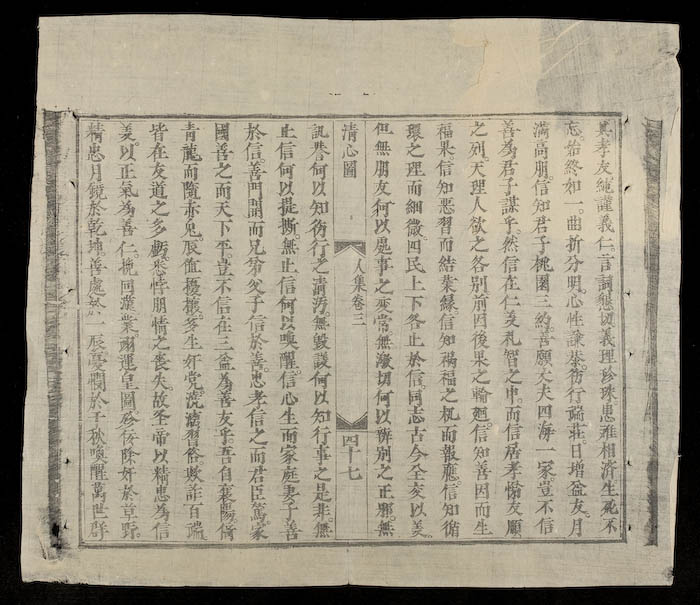 其孝友純謹義仁。言詞懇切義理珍珠患难相济生死不
忘。始終如一。曲折分明心性謙恭。彷行端莊日增益友月
满高朋。信知君子桃園三約。善願大夫四海一家豈不信
善為君子謀乎。然信在仁義礼智之中。而信居孝悌友顺
之列。天理人欲之各别前因後果之輪廻。信知善因而生
福果。信知悪習而結業緣。信知祸福之机而報應。信知循
環之理而細微。四民上下各止於信。同志古今全交以美。
但無朋友何以處事之变常。無激切何以辨别之正邪。無
清心圖
人集卷三
四十七
謗何以知彷行之清污。無毀議何以知行事之是非。無
止信何以提撕。無止信何以喚醒。信心生而家庭妻子善
於信。善門開而兄弟父子信於善。忠孝信之而君臣篤。家
國善之而天下平。豈不信在三益為善友乎。吾自襄陽。倚
青龍而隨赤兎。辰值擾攘。多生奸党。澆漓習俗数計百端。
皆在友道之多虧。悖朋情之喪失。故圣帝以精忠為信
義。以正氣為善仁。挽回漢業運皇圖。佞除奸於草野。
精忠月鏡於乾坤。善處於一辰憂憫於千秋。喚醒萬世群